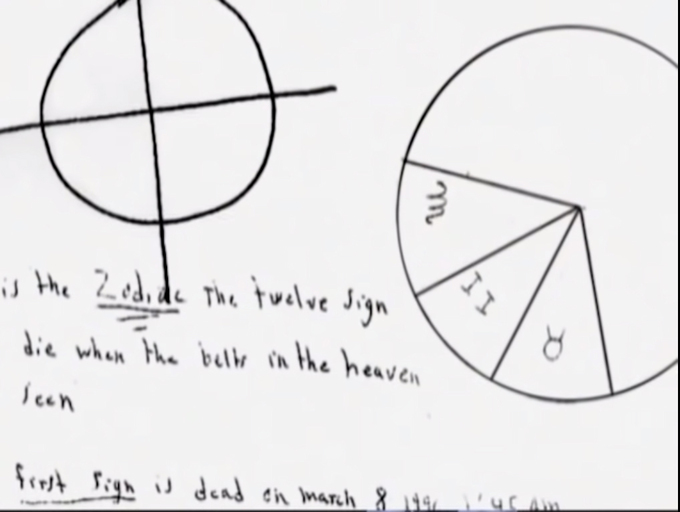 ♏
II
♉
is the Zodiac The twelve sign
die when the belts in the heaven
seen
first sign is dead on march 8 1:45 AM